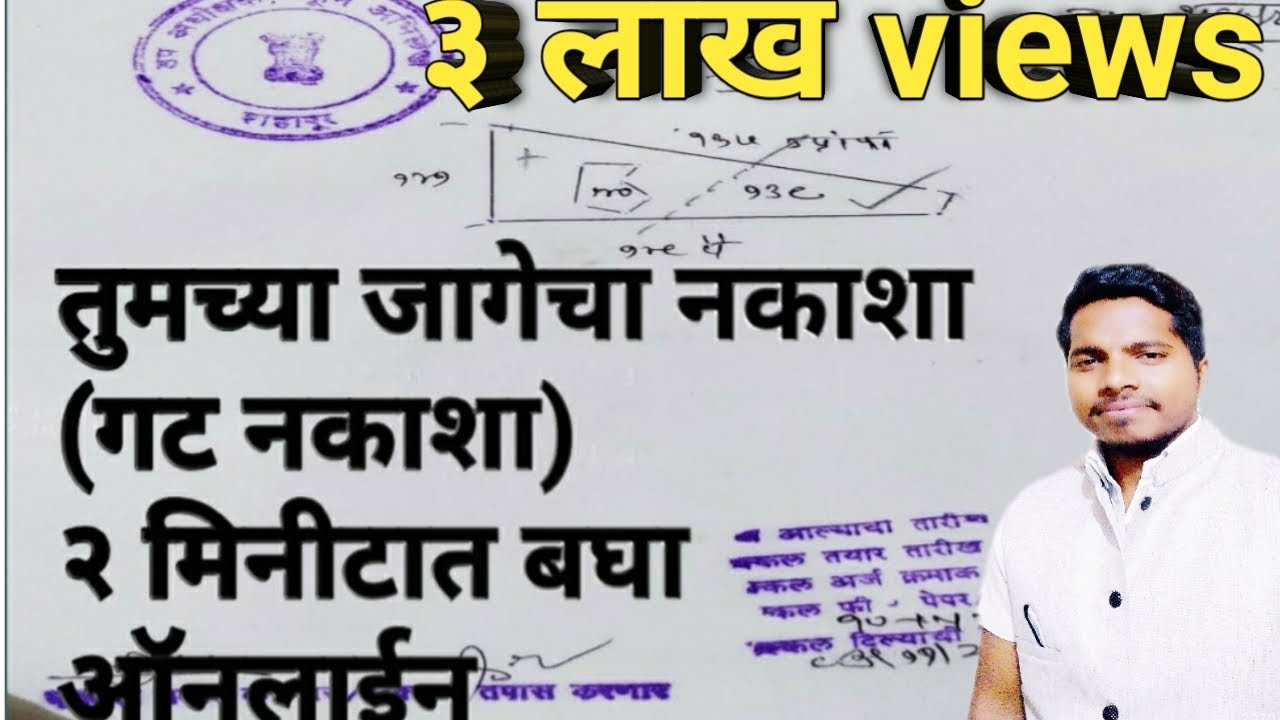 ३ लाख views
उप अधीक्षक, भूमि अभिलेख
शहापूर
१३५
१४१
४०
१३८
१४८ पै
तुमच्या जागेचा नकाशा
(गट नकाशा)
२ मिनीटात बघा
ऑनलाईन
आल्याचा तारीख
नक्कल तयार तारीख
नक्कल अर्ज क्रमांक
नक्कल फी - पेपर
नक्कल दिल्याची
तपास करणार